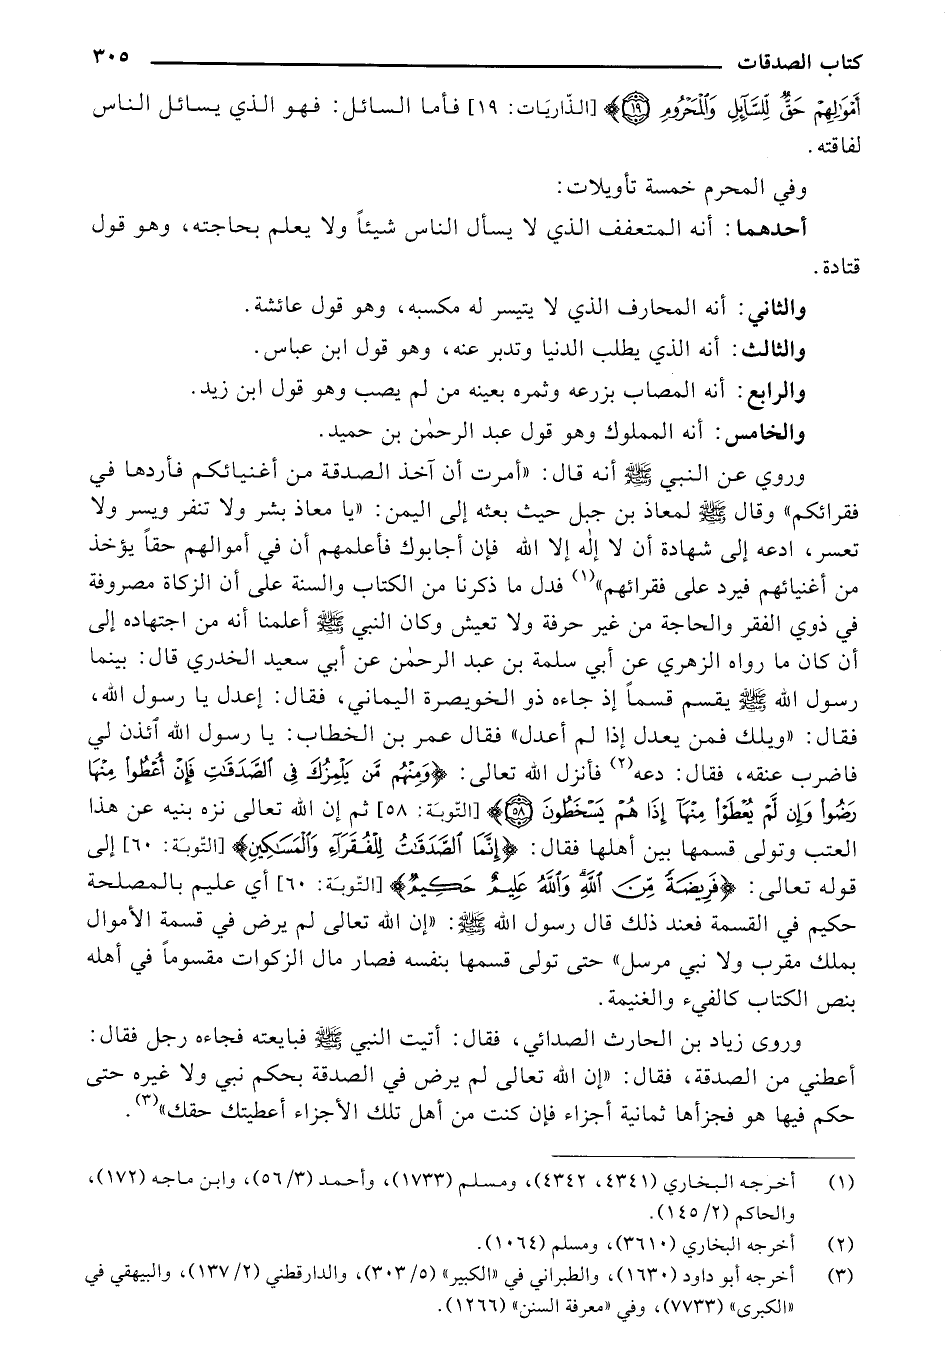 كتاب الصدقات ٣٠٥
أَمْوَالِهِمْ حَقٌّ لِّلسَّآئِلِ وَالْمَحْرُومِ ﴿١٩﴾﴾ [الذّاريَات: ١٩] فأما السائل: فهو الذي يسائل الناس
لفاقته.
وفي المحرم خمسة تأويلات:
أحدهما: أنه المتعفف الذي لا يسأل الناس شيئاً ولا يعلم بحاجته، وهو قول
قتادة.
والثاني: أنه المحارف الذي لا يتيسر له مكسبه، وهو قول عائشة.
والثالث: أنه الذي يطلب الدنيا وتدبر عنه، وهو قول ابن عباس.
والرابع: أنه المصاب بزرعه وثمره بعينه من لم يصب وهو قول ابن زيد.
والخامس: أنه المملوك وهو قول عبد الرحمٰن بن حميد.
وروي عن النبي ﷺ أنه قال: «أمرت أن آخذ الصدقة من أغنيائكم فأردها في
فقرائكم» وقال ﷺ لمعاذ بن جبل حيث بعثه إلى اليمن: «يا معاذ بشر ولا تنفر ويسر ولا
تعسر، ادعه إلى شهادة أن لا إلٰه إلا الله فإن أجابوك فأعلمهم أن في أموالهم حقاً يؤخذ
من أغنيائهم فيرد على فقرائهم»(١) فدل ما ذكرنا من الكتاب والسنة على أن الزكاة مصروفة
في ذوي الفقر والحاجة من غير حرفة ولا تعيش وكان النبي ﷺ أعلمنا أنه من اجتهاده إلى
أن كان ما رواه الزهري عن أبي سلمة بن عبد الرحمٰن عن أبي سعيد الخدري قال: بينما
رسول الله ﷺ يقسم قسماً إذ جاءه ذو الخويصرة اليماني، فقال: إعدل يا رسول الله،
فقال: «ويلك فمن يعدل إذا لم أعدل» فقال عمر بن الخطاب: يا رسول الله ائذن لي
فاضرب عنقه، فقال: دعه(٢) فأنزل الله تعالى: ﴿وَمِنْهُم مَّن يَلْمِزُكَ فِى الصَّدَقَاتِ فَإِنْ أُعْطُوا مِنْهَا
رَضُوا وَإِن لَّمْ يُعْطَوْا مِنْهَآ إِذَا هُمْ يَسْخَطُونَ ﴿٥٨﴾﴾ [التّوبَة: ٥٨] ثم إن الله تعالى نزه بنيه عن هذا
العتب وتولى قسمها بين أهلها فقال: ﴿إِنَّمَا الصَّدَقَاتُ لِلْفُقَرَآءِ وَالْمَسَاكِينِ﴾ [التّوبَة: ٦٠] إلى
قوله تعالى: ﴿فَرِيضَةً مِّنَ اللَّهِ وَاللَّهُ عَلِيمٌ حَكِيمٌ﴾ [التّوبَة: ٦٠] أي عليم بالمصلحة
حكيم في القسمة فعند ذلك قال رسول الله ﷺ: «إن الله تعالى لم يرض في قسمة الأموال
بملك مقرب ولا نبي مرسل» حتى تولى قسمها بنفسه فصار مال الزكوات مقسوماً في أهله
بنص الكتاب كالفيء والغنيمة.
وروى زياد بن الحارث الصدائي، فقال: أتيت النبي ﷺ فبايعته فجاءه رجل فقال:
أعطني من الصدقة، فقال: «إن الله تعالى لم يرض في الصدقة بحكم نبي ولا غيره حتى
حكم فيها هو فجزأها ثمانية أجزاء فإن كنت من أهل تلك الأجزاء أعطيتك حقك»(٣).
(١) أخرجه البخاري (٤٣٤١، ٤٣٤٢)، ومسلم (١٧٣٣)، وأحمد (٣/ ٥٦)، وابن ماجه (١٧٢)،
والحاكم (٢/ ١٤٥).
(٢) أخرجه البخاري (٣٦١٠)، ومسلم (١٠٦٤).
(٣) أخرجه أبو داود (١٦٣٠)، والطبراني في «الكبير» (٥/ ٣٠٣)، والدارقطني (٢/ ١٣٧)، والبيهقي في
«الكبرى» (٧٧٣٣)، وفي «معرفة السنن» (١٢٦٦).